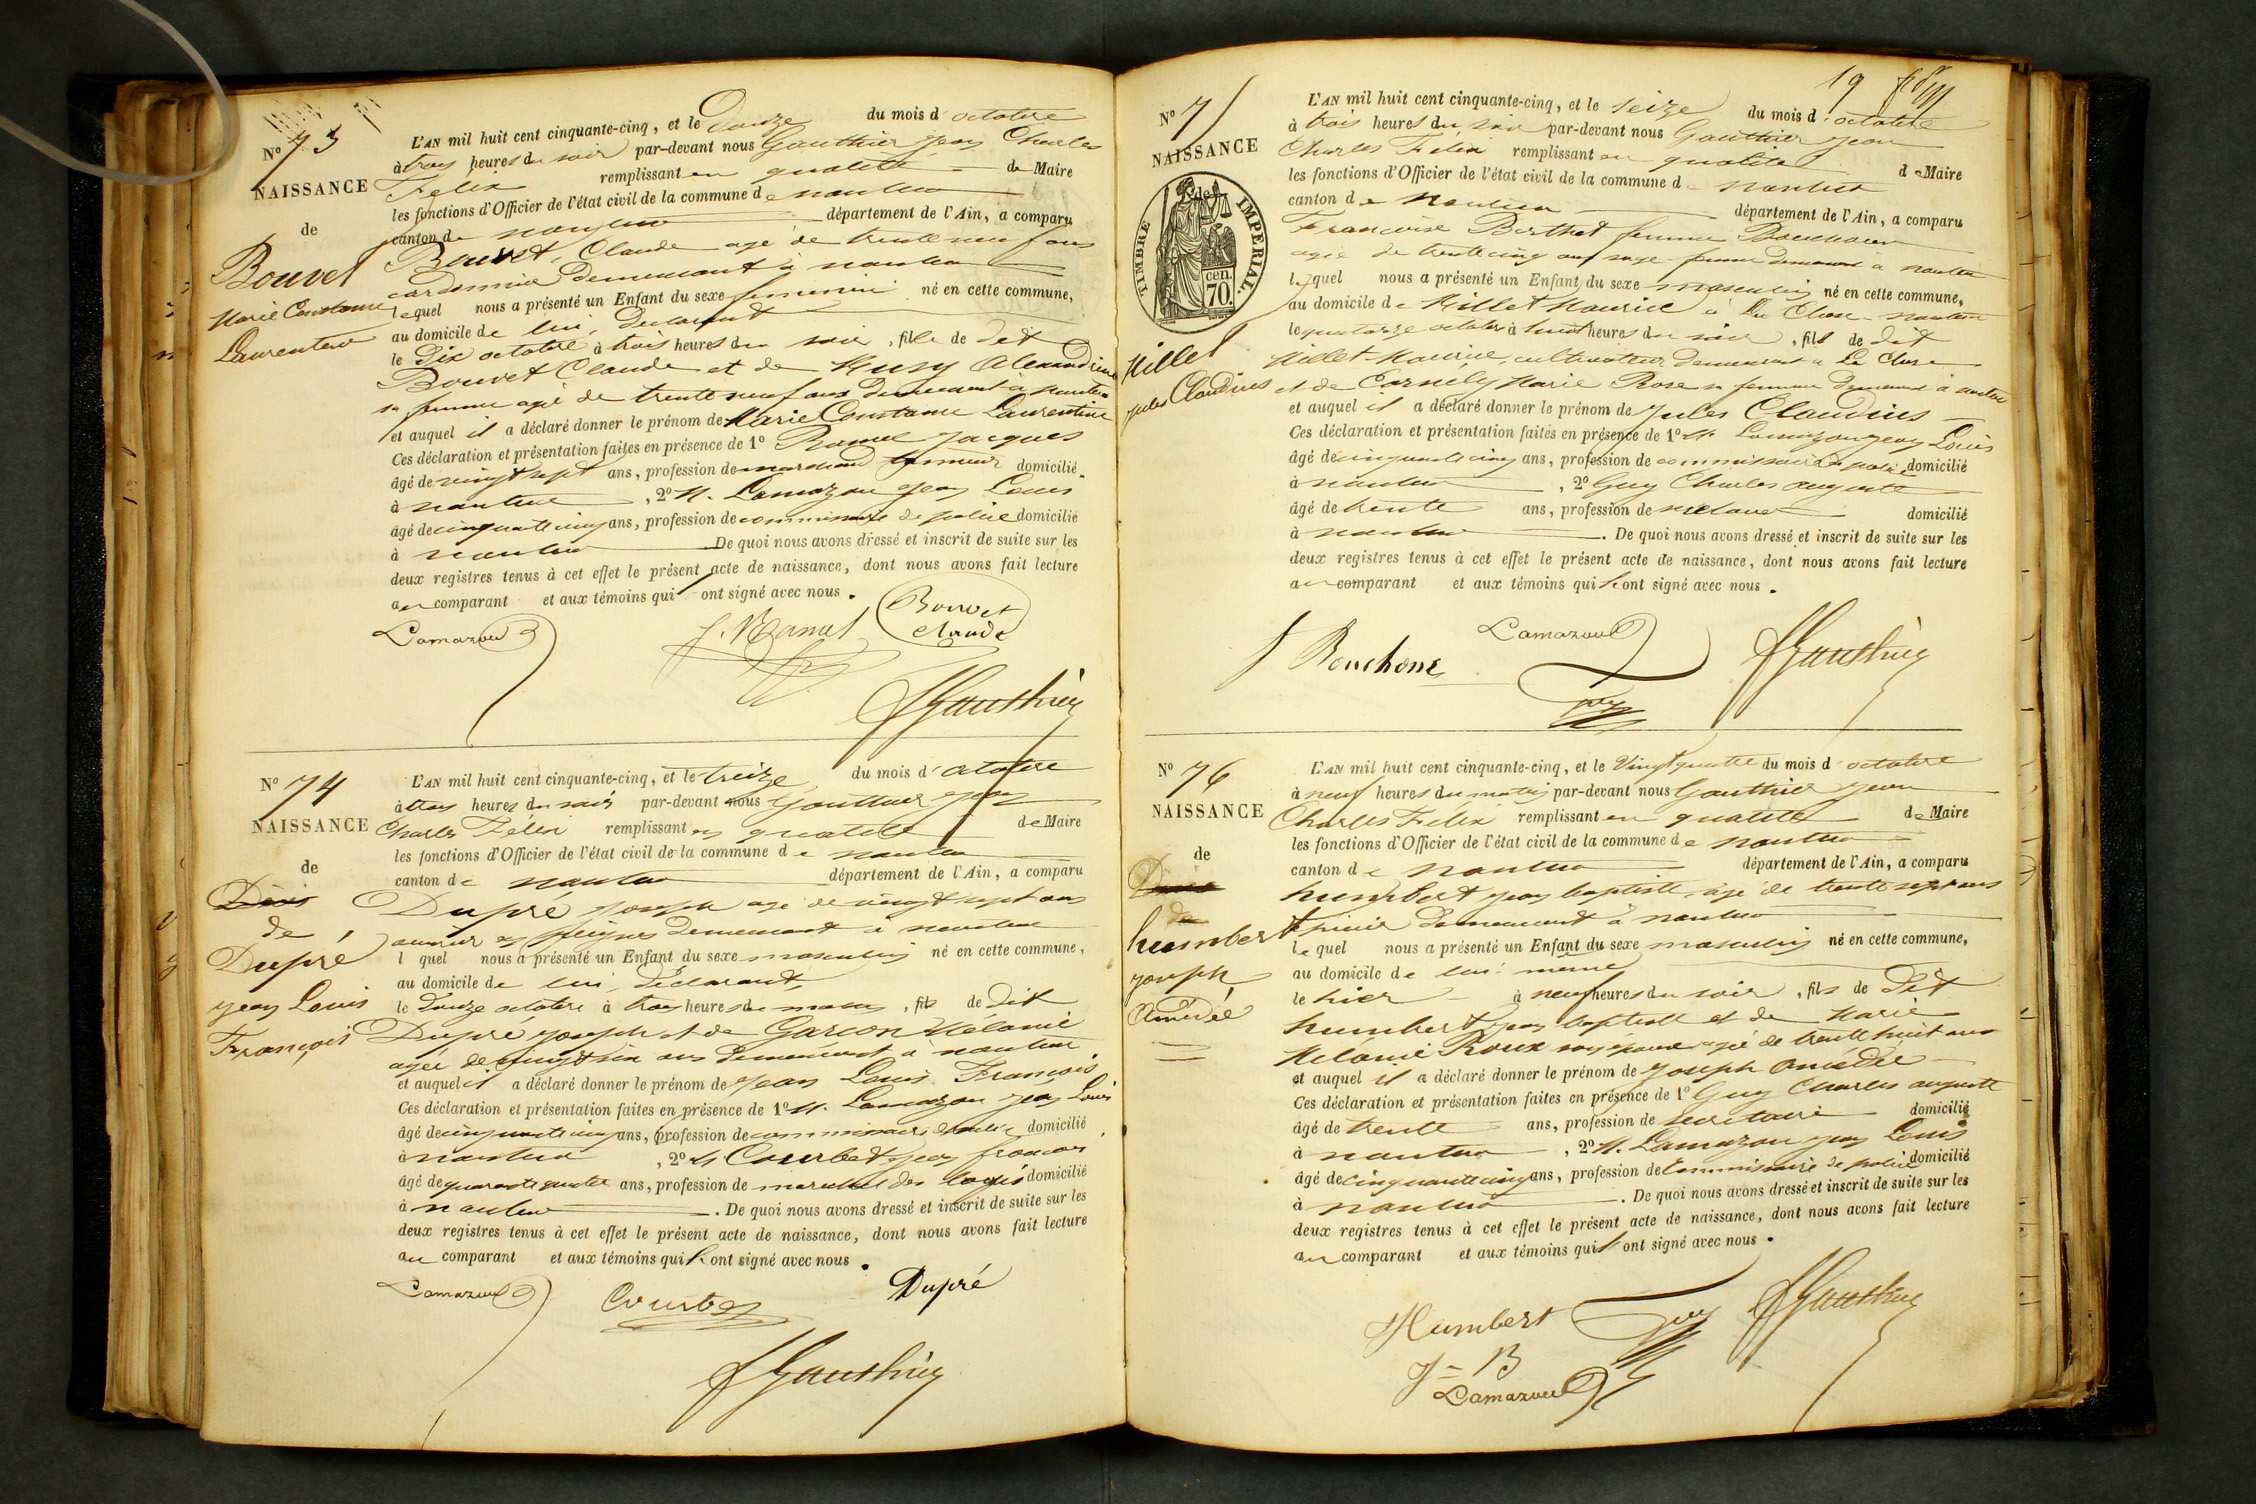 N° 73
NAISSANCE
de
Bouvet
Marie Constance
Laurentine
L'AN mil huit cent cinquante-cinq, et le Douze du mois d'octobre
à trois heures du soir par-devant nous Gauthier Jean Charles
Félix remplissant en qualité de Maire
les fonctions d'Officier de l'état civil de la commune de nantua
canton de nantua département de l'Ain, a comparu
Bouvet, Claude agé de trente neuf ans
cordonnier demeurant à nantua
lequel nous a présenté un Enfant du sexe feminin né en cette commune,
au domicile de lui, declarant
le Dix octobre à trois heures du soir, fille de dit
Bouvet Claude et de Musy Alexandrine
sa femme agée de trente neuf ans demeurant à nantua
et auquel il a déclaré donner le prénom de Marie Constance Laurentine
Ces déclaration et présentation faites en présence de 1° Ramel Jacques
âgé de vingt sept ans, profession de marchand domicilié
à nantua, 2° M. Lamazou Jean Louis
âgé de cinquante cinq ans, profession de commissaire de police domicilié
à nantua De quoi nous avons dressé et inscrit de suite sur les
deux registres tenus à cet effet le présent acte de naissance, dont nous avons fait lecture
au comparant et aux témoins qui ont signé avec nous.
Lamazou J. Ramel Bouvet
Claude
Gauthier
N° 74
NAISSANCE
de
de
Dupré
Jean Louis
François
L'AN mil huit cent cinquante-cinq, et le treize du mois d'octobre
à trois heures du soir par-devant nous Gauthier Jean
Charles Félix remplissant en qualité de Maire
les fonctions d'Officier de l'état civil de la commune de nantua
canton de nantua département de l'Ain, a comparu
Dupré Joseph agé de vingt sept ans
ouvrier en peignes demeurant à nantua
l quel nous a présenté un Enfant du sexe masculin né en cette commune,
au domicile de lui, déclarant,
le Douze octobre à trois heures du matin, fils de dit
Dupré Joseph et de Garcon Mélanie
agée de vingt six ans demeurant à nantua
et auquel il a déclaré donner le prénom de Jean Louis François
Ces déclaration et présentation faites en présence de 1° M. Lamazou Jean Louis
âgé de cinquante cinq ans, profession de commissaire de police domicilié
à nantua, 2° M Courbet Jean françois
âgé de quarante quatre ans, profession de marechal des logis domicilié
à nantua. De quoi nous avons dressé et inscrit de suite sur les
deux registres tenus à cet effet le présent acte de naissance, dont nous avons fait lecture
au comparant et aux témoins qui l'ont signé avec nous.
Lamazou Courbet Dupré
Gauthier
19
N° 7
NAISSANCE
de
TIMBRE IMPERIAL.
cen.
70.
Millet
Jules Claudius
L'AN mil huit cent cinquante-cinq, et le seize du mois d'octobre
à trois heures du soir par-devant nous Gauthier Jean
Charles Félix remplissant en qualité de Maire
les fonctions d'Officier de l'état civil de la commune de nantua
canton de nantua département de l'Ain, a comparu
Francoise Berthet femme Bouchone
agée de trente cinq ans sage-femme demeurant à nantua
lequel nous a présenté un Enfant du sexe masculin né en cette commune,
au domicile de Millet Maurice à La Cluse nantua
le quatorze octobre à huit heures du soir, fils de dit
Millet Maurice, cultivateur demeurant à La Cluse
et de Carnély Marie Rose sa femme demeurant à nantua
et auquel il a déclaré donner le prénom de Jules Claudius
Ces déclaration et présentation faites en présence de 1° M. Lamazou Jean Louis
âgé de cinquante cinq ans, profession de commissaire de police domicilié
à nantua, 2° Guy Charles auguste
âgé de trente ans, profession de domicilié
à nantua. De quoi nous avons dressé et inscrit de suite sur les
deux registres tenus à cet effet le présent acte de naissance, dont nous avons fait lecture
au comparant et aux témoins qui l'ont signé avec nous.
f Bouchone Lamazou Guy Gauthier
N° 76
NAISSANCE
de
humbert
Joseph
Amédée
L'AN mil huit cent cinquante-cinq, et le Vingt quatre du mois d'octobre
à neuf heures du matin par-devant nous Gauthier Jean
Charles Félix remplissant en qualité de Maire
les fonctions d'Officier de l'état civil de la commune de nantua
canton de nantua département de l'Ain, a comparu
humbert Jean baptiste, agé de trente sept ans
épicier demeurant à nantua
lequel nous a présenté un Enfant du sexe masculin né en cette commune,
au domicile de lui-même
le hier à neuf heures du soir, fils de dit
humbert Jean baptiste et de Marie
Mélanie Roux son épouse agée de trente huit ans
et auquel il a déclaré donner le prénom de Joseph amédée
Ces déclaration et présentation faites en présence de 1° Guy Charles auguste
âgé de trente ans, profession de secrétaire domicilié
à nantua, 2° M. Lamazou Jean Louis
âgé de cinquante cinq ans, profession de Commissaire de police domicilié
à nantua. De quoi nous avons dressé et inscrit de suite sur les
deux registres tenus à cet effet le présent acte de naissance, dont nous avons fait lecture
au comparant et aux témoins qui l'ont signé avec nous.
Humbert Guy Gauthier
J=B
Lamazou